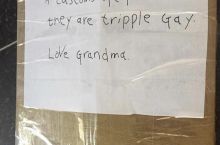 they are tripple Gay.
Love Grandma.